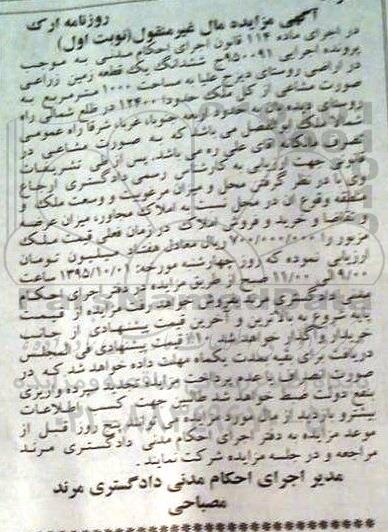 روزنامه ارک
آگهی مزایده مال غیرمنقول(نوبت اول)
در اجرای ماده ۱۱۴ قانون اجرای احکام مدنی به موجب
پرونده اجرایی ۹۵۰۰۹۱ج ششدانگ یک قطعه زمین زراعی
در اراضی روستای دیزج علیا به مساحت ۱۰۰۰ مترمربع به
صورت مشاعی از کل ملک حدودا ۱۲۴۰۰ در ضلع شمالی راه
روستای به حدود اربعه جنوبا، غربا، شرقا راه عمومی
شمالا ملک متصل می باشد که به صورت مشاعی در
تصرف مالکانه آقای علی ره می باشد. پس از طی تشریفات
قانونی جهت ارزیابی به کارشناس رسمی دادگستری ارجاع
وی با در نظر گرفتن محل و میزان مرغوبیت و وسعت ملک و
منطقه وقوع آن در محل نسبت به املاک مجاور، میزان عرضه
و تقاضا و خرید و فروش املاک در زمان فعلی قیمت ملک
مزبور را ۷۰۰/۰۰۰/۰۰۰ ریال معادل هفتاد میلیون تومان
ارزیابی نموده که روز چهارشنبه مورخه: ۱۳۹۵/۱۰/۰۱ ساعت
۹/۰۰ الی ۱۱/۰۰ صبح از طریق مزایده در دفتر اجرای احکام
مدنی دادگستری مرند بفروش خواهد رفت مزایده از قیمت
پایه شروع به بالاترین و آخرین قیمت پیشنهادی از جانب
خریدار واگذار خواهد شد. ۱۰٪ قیمت پیشنهادی فی المجلس
دریافت برای بقیه بمدت یکماه مهلت داده خواهد شد که در
صورت انصراف یا عدم پرداخت مزایده تجدید سپرده واریزی
بنفع دولت ضبط خواهد شد طالبین جهت کسب اطلاعات
بیشتر و بازدید از مال مورد مزایده می توانند پنج روز قبل از
موعد مزایده به دفتر اجرای احکام مدنی دادگستری مرند
مراجعه و در جلسه مزایده شرکت نمایند.
مدیر اجرای احکام مدنی دادگستری مرند
مصباحی